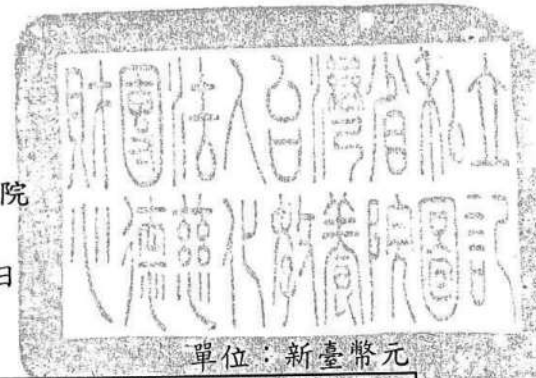 財團法人台灣省私立
心德慈化教養院圖記
院
日
單位：新臺幣元